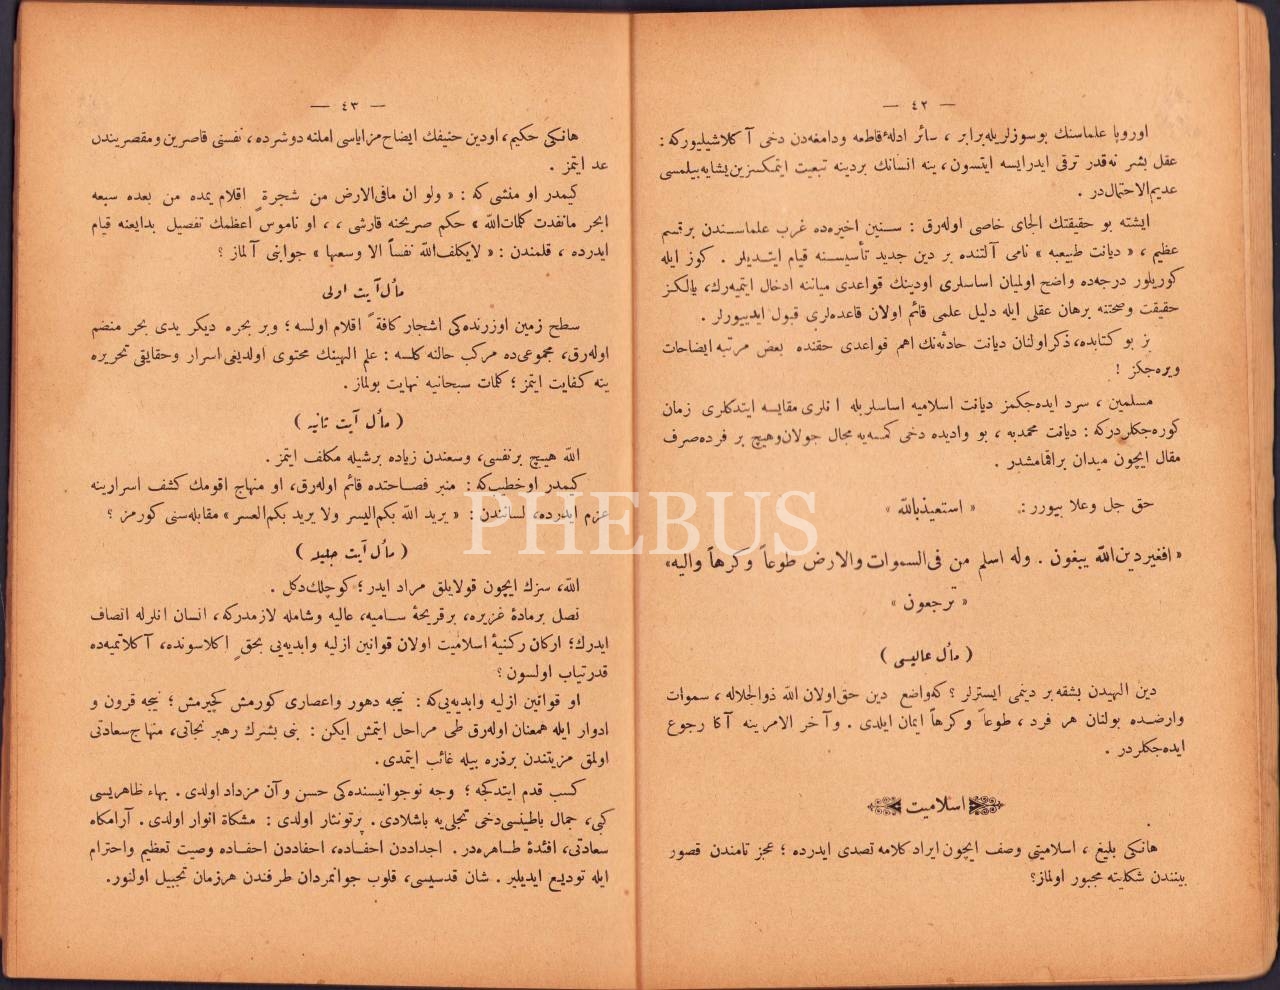 — ٤٢ —
اوروپا علماسنك بوسوزلريله برابر ، سائر ادلۀ قاطعه ودامغه‌دن دخى آ كلاشيليوركه :
عقل بشر نه‌قدر ترقى ايدرايسه ايتسون ، ينه انسانك بردينه تبعيت ايتمكسزين يشايه بيلمسى
عديم‌الاحتمال‌در .
ايشته بو حقيقتك الجاى خاصى اوله‌رق : سنين اخيره‌ده غرب علماسندن برقسم
عظيم ، « ديانت طبيعيه » نامى آلتنده بر دين جديد تأسيسنه قيام ايتديلر . كوز ايله
كوريلور درجه‌ده واضح اولميان اساسلرى اودينك قواعدى ميانه ادخال ايتميه‌رك، يالكز
حقيقت وصحتنه برهان عقلى ايله دليل علمى قائم اولان قاعده‌لرى قبول ايدييورلر .
بز بو كتابده، ذكراولنان ديانت حادثه‌نك اهم قواعدى حقنده بعض مرتبه ايضاحات
ويره‌جكز !
مسلمين ، سرد ايده‌جكمز ديانت اسلاميه اساسلريله انلرى مقايسه ايتدكلرى زمان
كوره‌جكلردركه : ديانت محمديه ، بو واديده دخى كمسه‌يه مجال جولان وهيچ بر فرده صرف
مقال ايچون ميدان براقمامشدر .
حق جل وعلا بيورر : « استعيذبالله »
« افغيردين‌الله يبغون . وله اسلم من فى‌السموات والارض طوعاً وكرهاً واليه»
« ترجعون »
( مآل عاليسى )
دين الهيدن بشقه بر دينمى ايسترلر ؟ كه‌واضع دين حق‌اولان الله ذوالجلاله ، سموات
وارضده بولنان هر فرد ، طوعاً وكرهاً ايمان ايلدى . وآخر الامرينه آ كا رجوع
ايده‌جكلردر .
اسلاميت
هانكى بليغ ، اسلاميتى وصف ايچون ايراد كلامه تصدى ايدرده ؛ عجز تامندن قصور
بيننندن شكايته مجبور اولماز؟
— ٤٣ —
هانكى حكيم، اودين حنيفك ايضاح مزاياسى املنه دوشرده ، نفسنى قاصرين ومقصريندن
عد ايتمز .
كيمدر او منشى كه : « ولو ان مافى‌الارض من شجرةٍ اقلام يمده من بعده سبعه
ابحر مانفدت كلمات‌الله » حكم صريحنه قارشى ، ، او ناموس اعظمك تفصيل بدايعنه قيام
ايدرده ، قلمندن : « لايكلف‌الله نفساً الا وسعها » جوابنى آلماز ؟
مآل آيت اولى
سطح زمين اوزرنده‌كى اشجار كافةً اقلام اولسه ؛ وبر بحره ديكر يدى بحر منضم
اوله‌رق، مجموعى‌ده مركب حالنه كلسه : علم الهينك محتوى اولديغى اسرار وحقايقى تحريره
ينه كفايت ايتمز ؛ كلمات سبحانيه نهايت بولماز .
( مآل آيت ثانيه )
الله هيچ برنفسى، وسعندن زياده برشيله مكلف ايتمز .
كيمدر اوخطيب‌كه : منبر فصاحتده قائم اوله‌رق، او منهاج اقومك كشف اسرارينه
عزم ايدرده، لسانندن : « يريد الله بكم‌اليسر ولا يريد بكم‌العسر » مقابله‌سنى كورمز ؟
( مآل آيت جليله )
الله، سزك ايچون قولايلق مراد ايدر ؛ كوچلك دكل .
نصل برمادۀ غزيره، برقريحۀ ساميه، عاليه وشامله لازمدركه، انسان انلرله اتصاف
ايدرك؛ اركان ركنيۀ اسلاميت اولان قوانين ازليه وابديه‌يى بحقٍ اكلاسونده، آ كلاتميه‌ده
قدرتياب اولسون ؟
او قوانين ازليه وابديه‌يى‌كه : نيجه دهور واعصارى كورمش كچيرمش ؛ نيجه قرون و
ادوار ايله همعنان اوله‌رق طى مراحل ايتمش ايكن : بنى بشرك رهبر نجاتى، منهاج سعادتى
اولمق مزيتندن برذره بيله غائب ايتمدى.
كسب قدم ايتدكجه ؛ وجه نوجوانيسنده‌كى حسن وآن مزداد اولدى . بهاء ظاهريسى
كبى، جمال باطينسى دخى تجلى‌يه باشلادى . پرتونثار اولدى : مشكاة انوار اولدى . آرامكاه
سعادتى، افئدۀ طاهره‌در . اجداددن احفاده، احفاددن احفاده وصيت تعظيم واحترام
ايله توديع ايديلير. شان قدسيسى، قلوب جوانمردان طرفندن هرزمان تبجيل اولنور.
PHEBUS